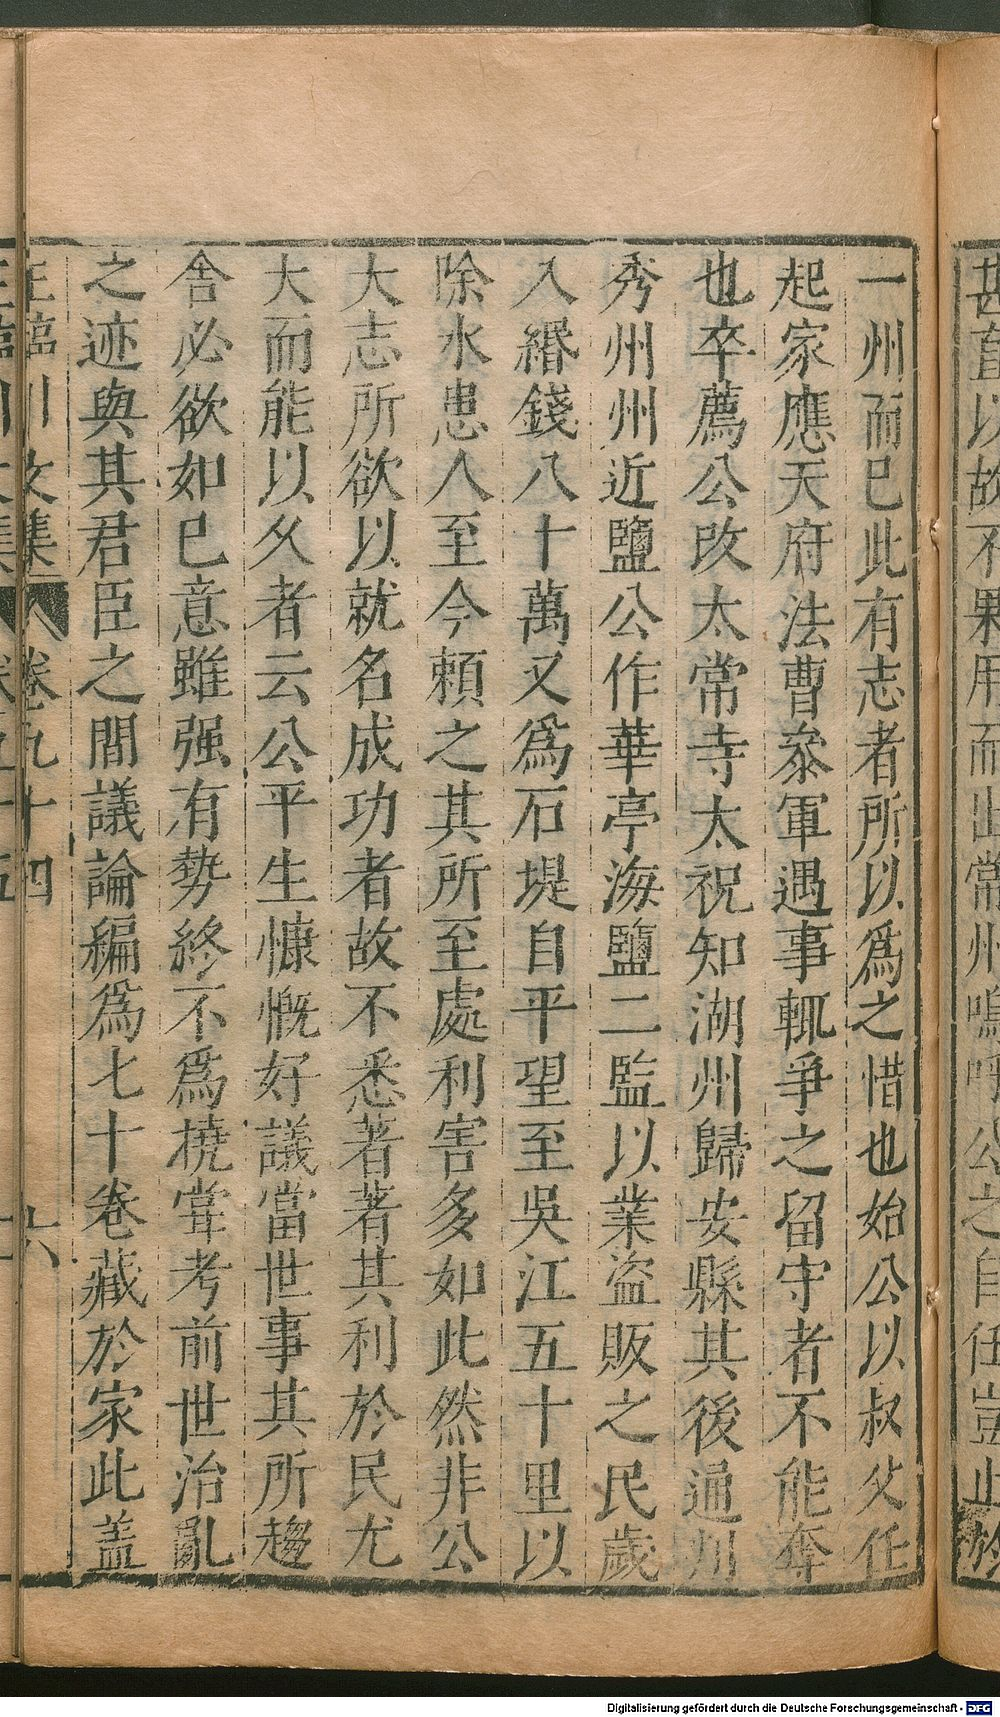 甚宜以故不果用而止常州嗚呼公之自任豈止於
一州而已此有志者所以爲之惜也始公以叔父任
起家應天府法曹叅軍遇事輒爭之留守者不能奪
也卒薦公改太常寺太祝知湖州歸安縣其後通州
秀州州近鹽公作華亭海鹽二監以業盜販之民歲
入緡錢八十萬又爲石堤自平望至吳江五十里以
除水患人至今賴之其所至處利害多如此然非公
大志所欲以就名成功者故不悉著著其利於民尤
大而能以久者云公平生慷慨好議當世事其所趨
舍必欲如已意雖强有勢終不爲撓甞考前世治亂
之迹與其君臣之間議論編爲七十卷藏於家此盖
王臨川文集 卷九十四 六
Digitalisierung gefördert durch die Deutsche Forschungsgemeinschaft - DFG